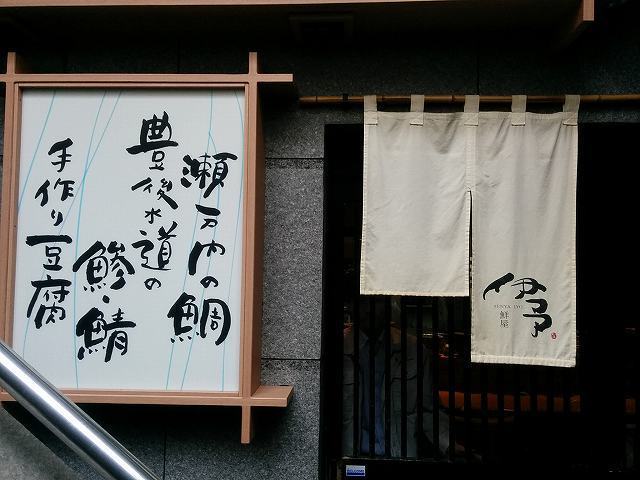 瀬戸内の鯛
豊後水道の
鯵・鯖
手作り豆腐
伊予
SENYA IYO
鮮屋